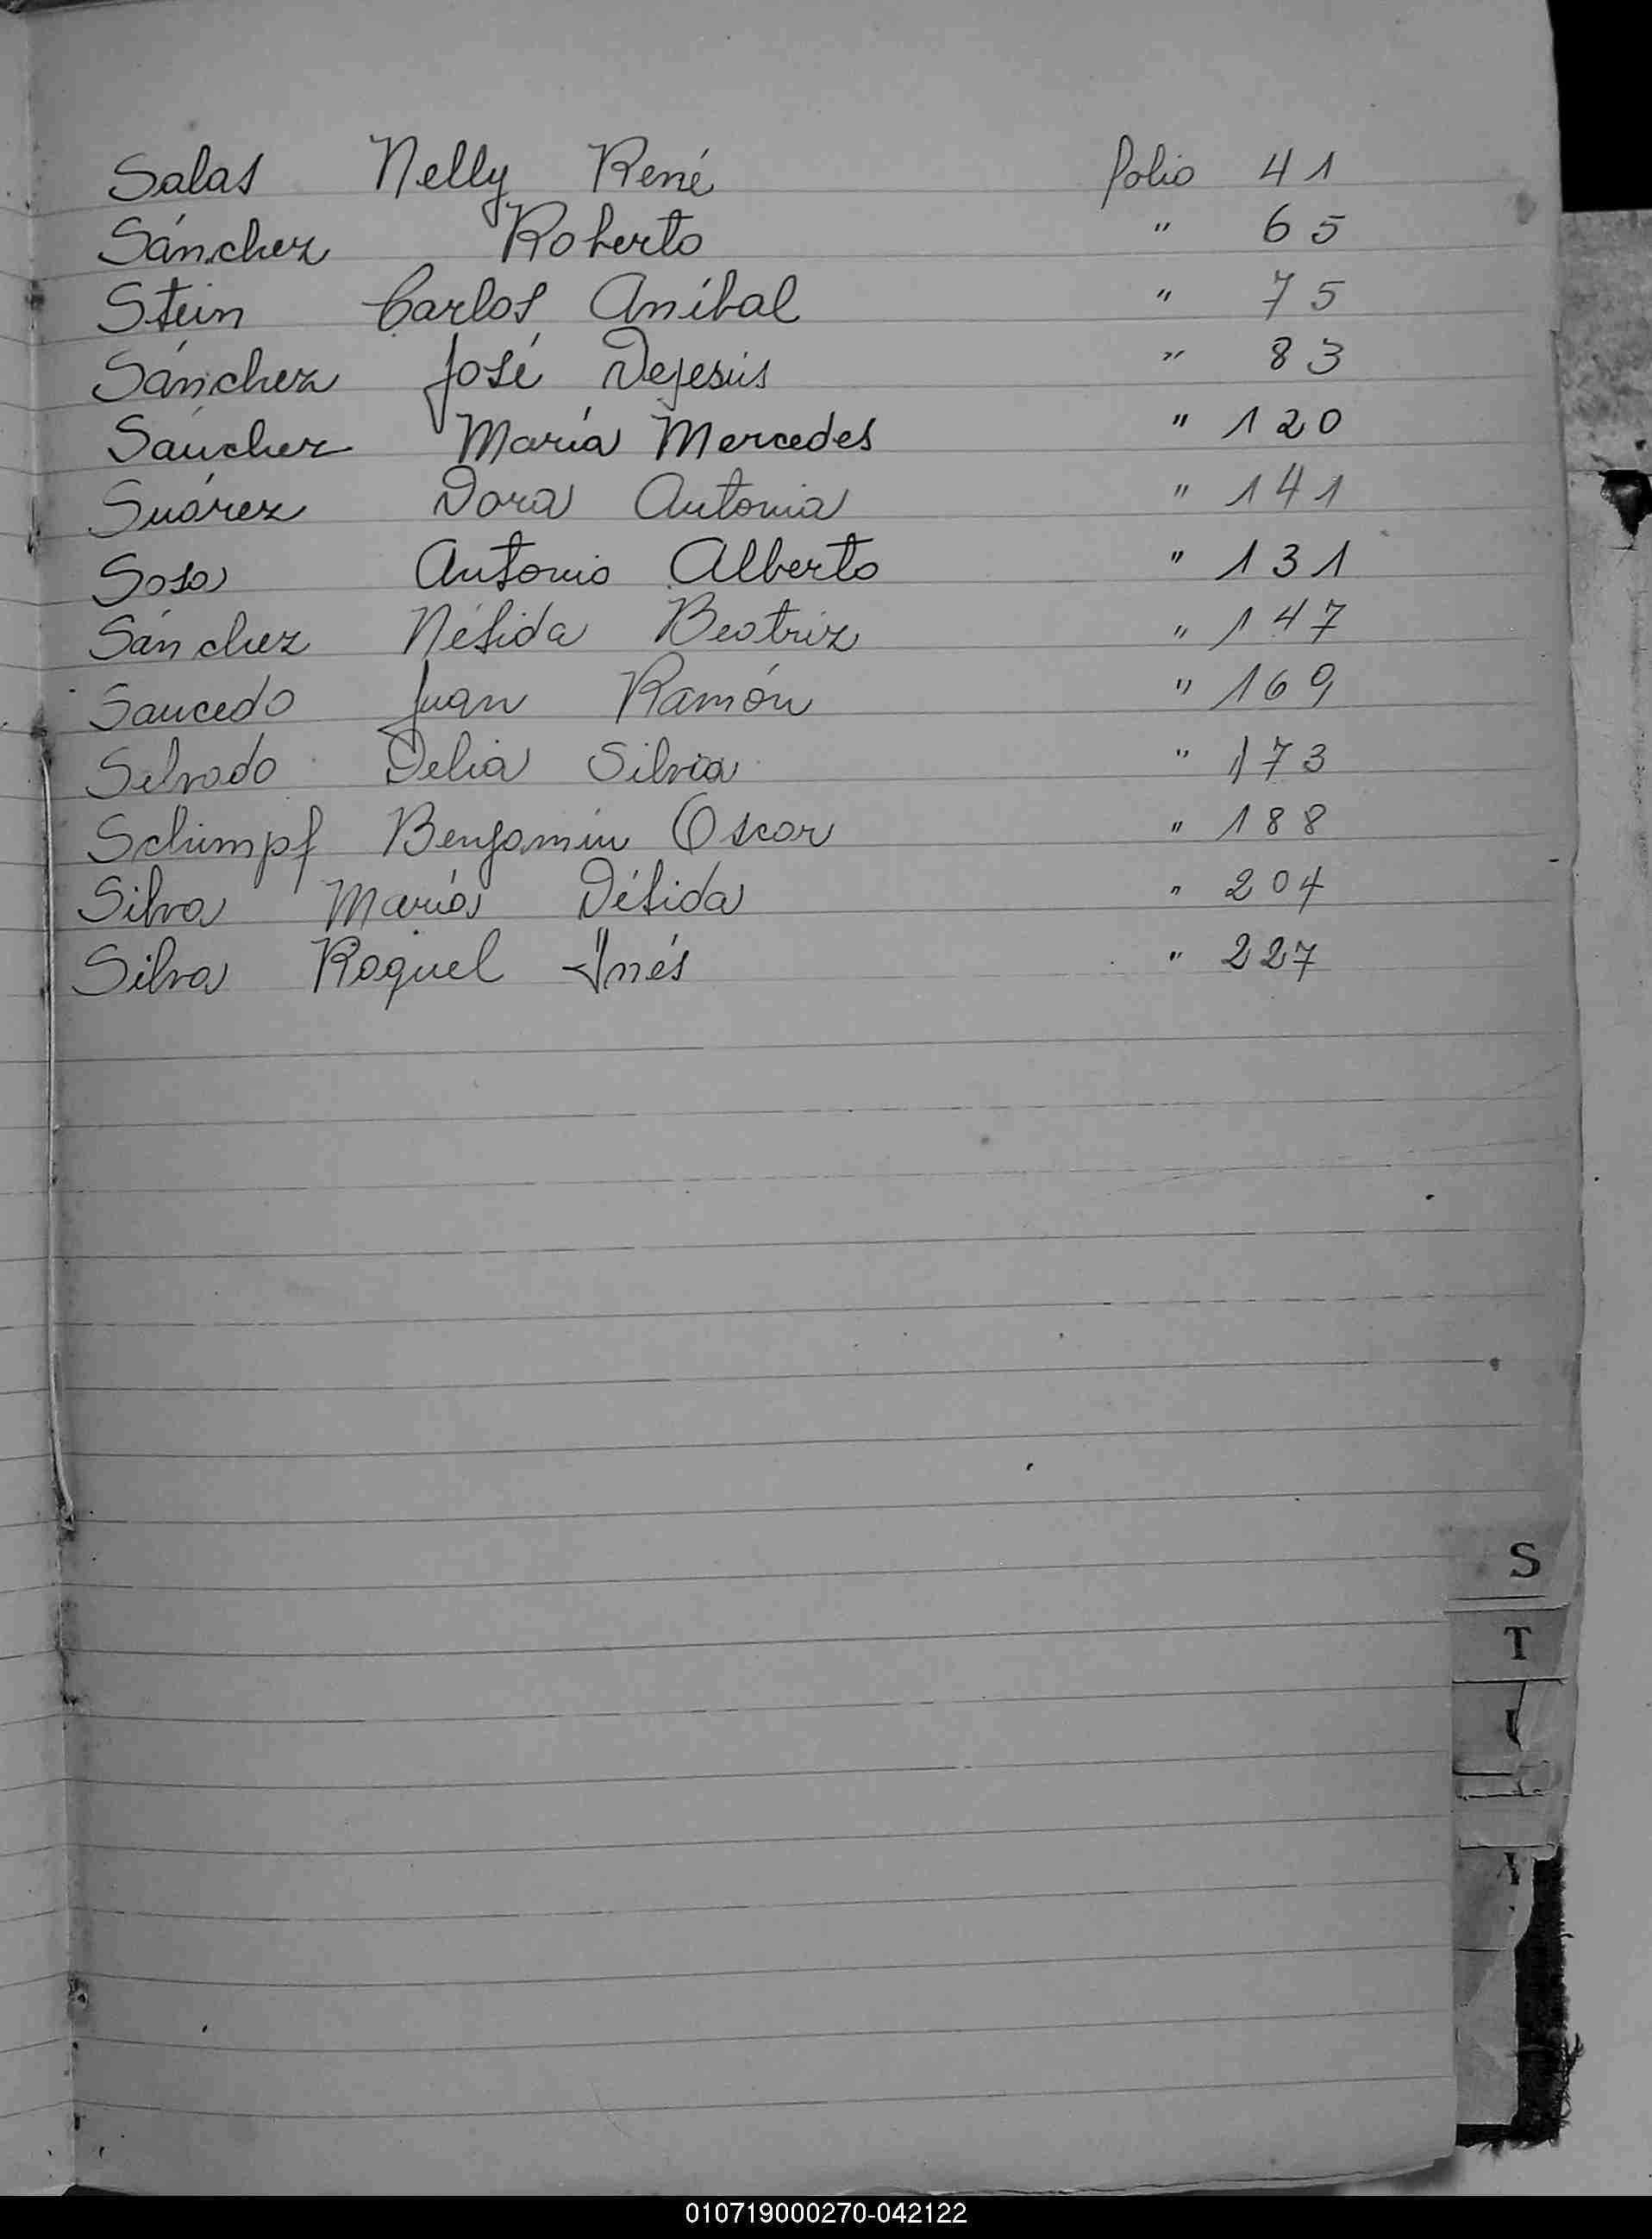 Salas Nelly René folio 41
Sánchez Roberto " 65
Stein Carlos Aníbal " 75
Sánchez José Dejesús " 83
Sánchez María Mercedes " 120
Suárez Dora Antonia " 141
Sosa Antonio Alberto " 131
Sánchez Nélida Beatriz " 147
Saucedo Juan Ramón " 169
Selvado Delia Silvia " 173
Schimpf Benjamín Oscar " 188
Silva María Délida " 204
Silva Raquel Inés " 227
S
T
010719000270-042122